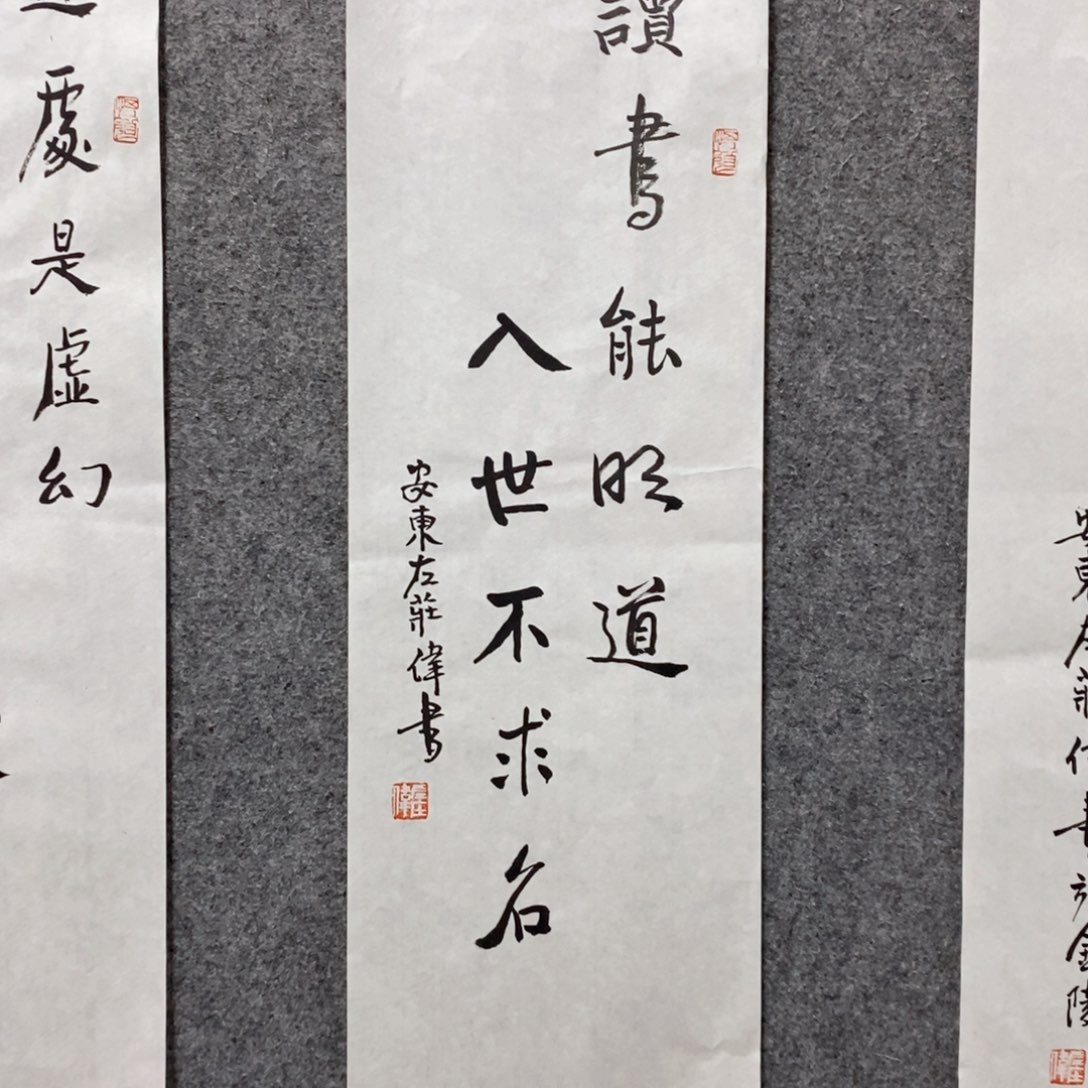 讀書能明道
入世不求名
安東左莊偉書
處是虛幻
安東左莊偉書於金陵